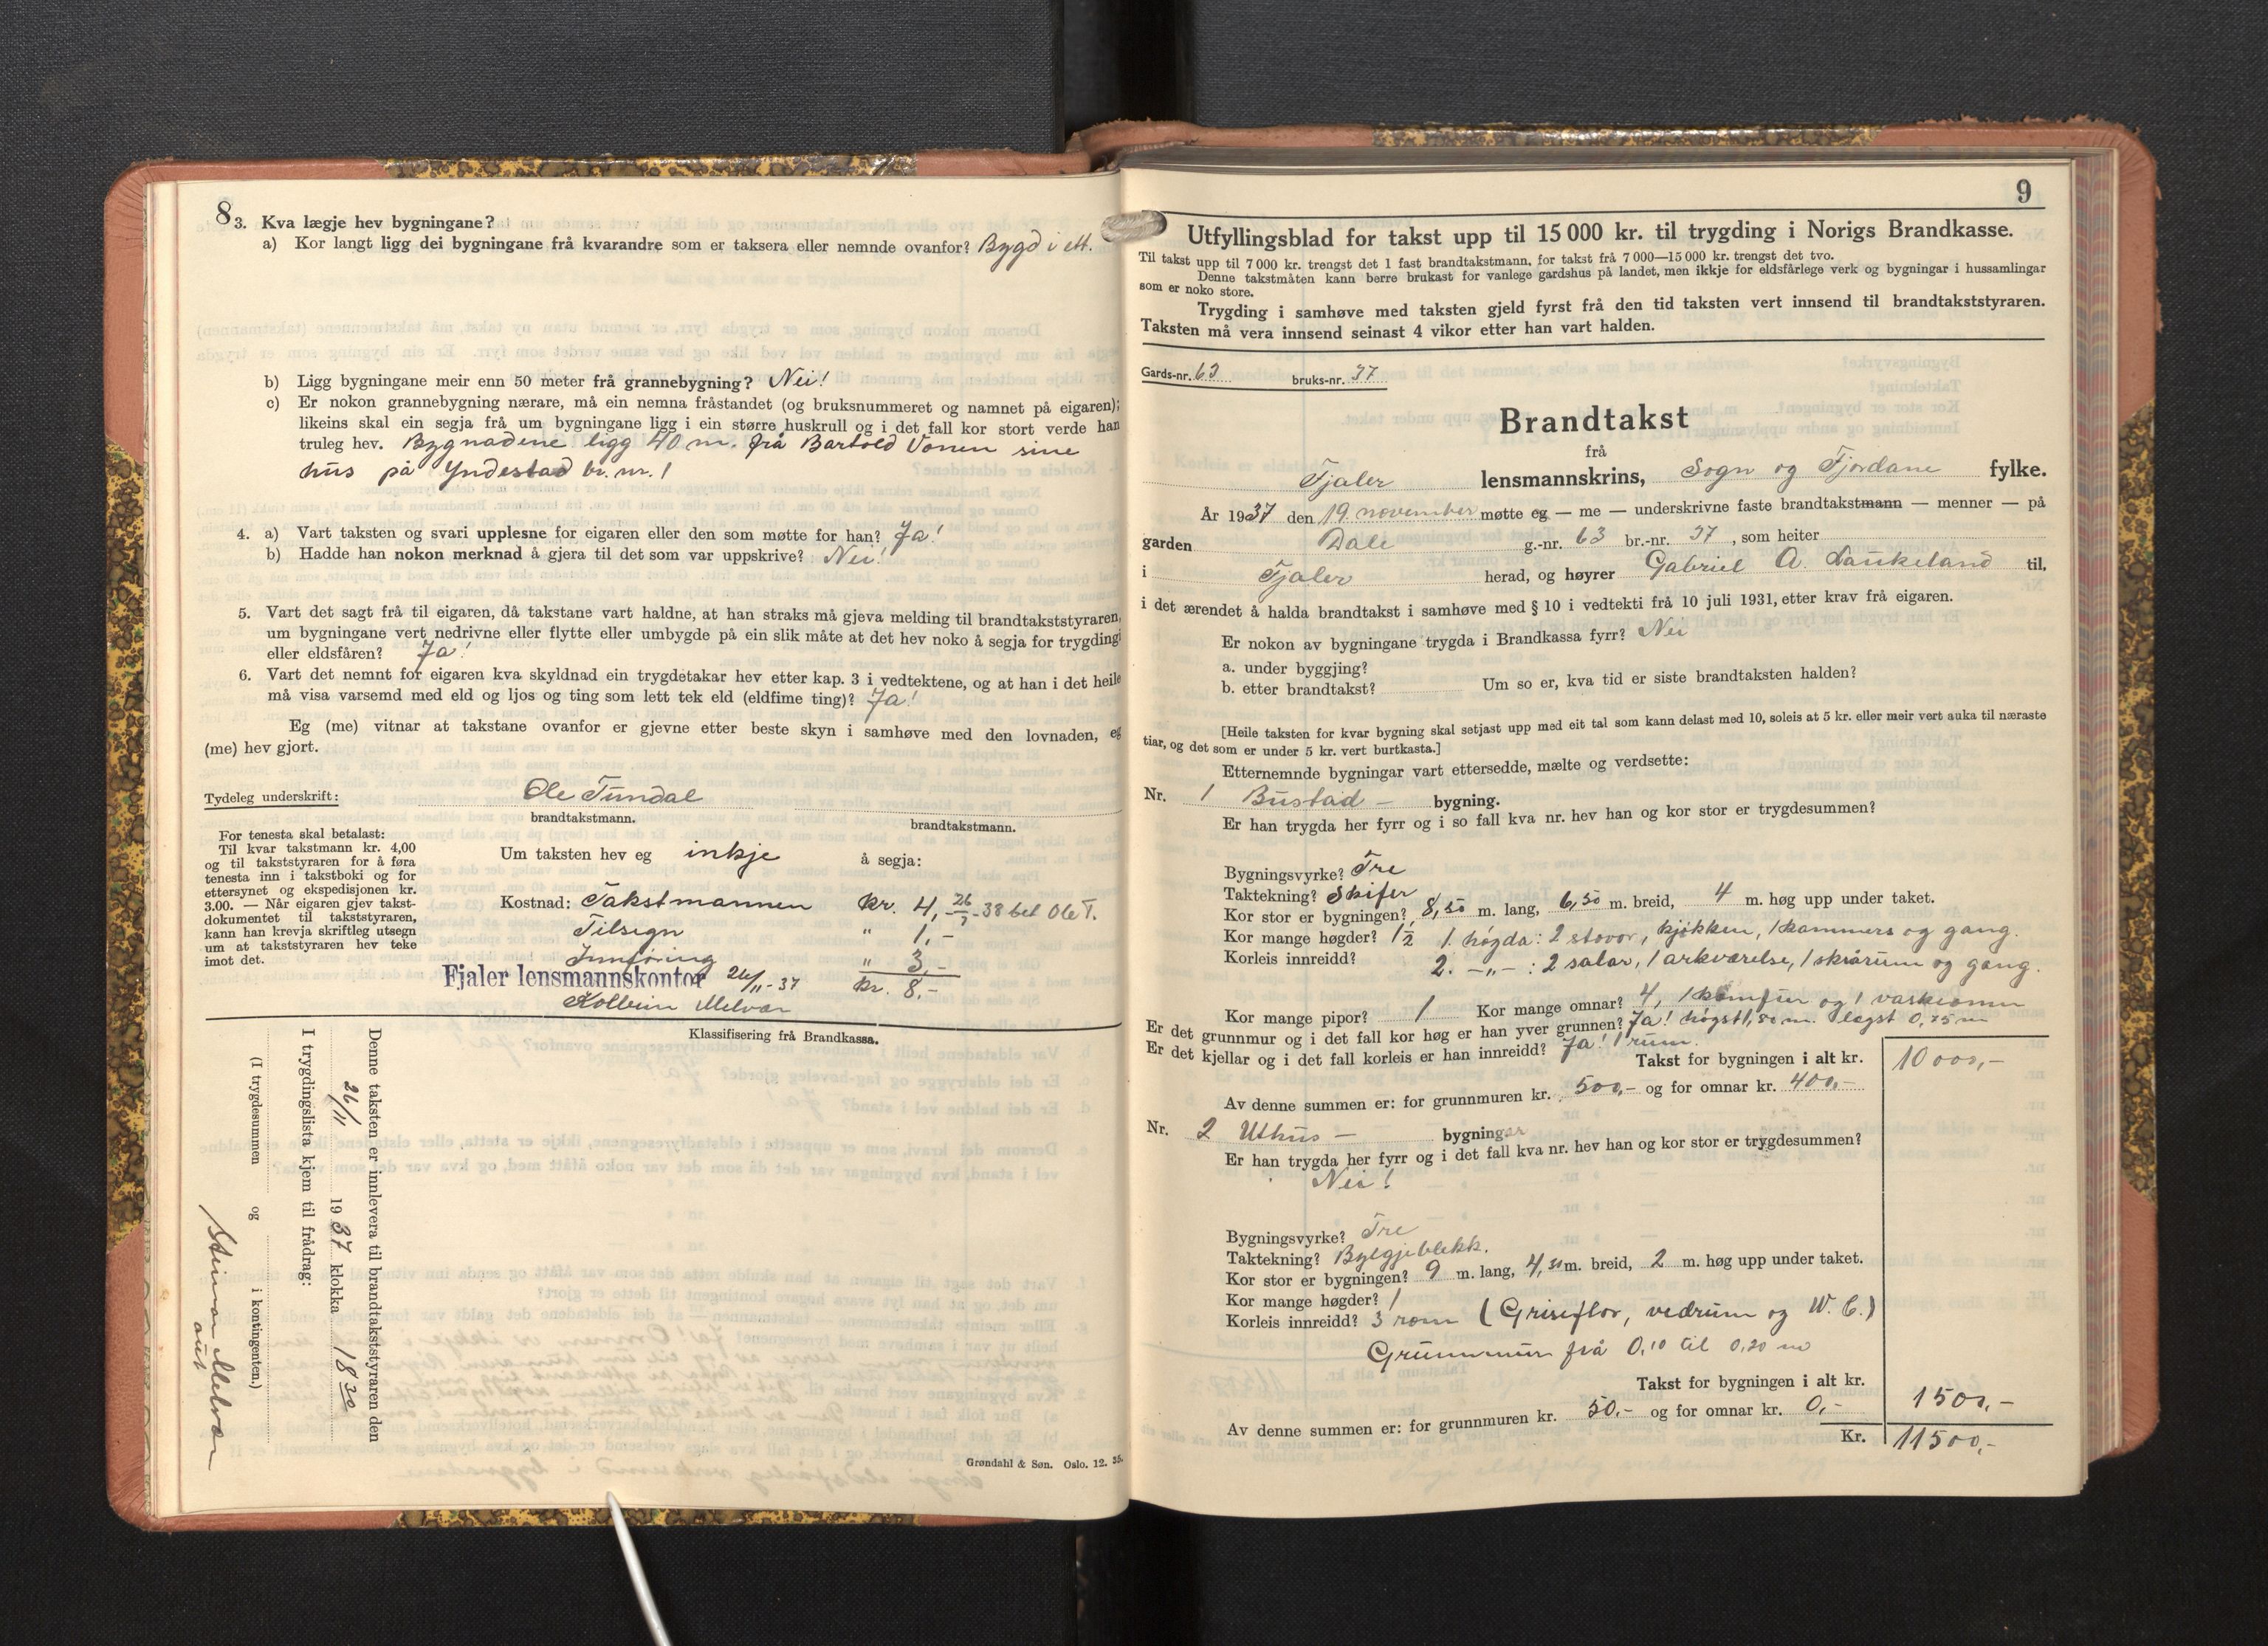 8
3. Kva lægje hev bygningane?
a) Kor langt ligg dei bygningane frå kvarandre som er taksera eller nemnde ovanfor? Bygd i ett.
b) Ligg bygningane meir enn 50 meter frå grannebygning? Nei!
c) Er nokon grannebygning nærare, må ein nemna fråstandet (og bruksnummeret og namnet på eigaren);
likeins skal ein segja frå um bygningane ligg i ein større huskrull og i det fall kor stort verde han
truleg hev. Bygnadene ligg 40 m. frå Bartold Vonen sine
hus på Yndestad br. nr. 1
4. a) Vart taksten og svari upplesne for eigaren eller den som møtte for han? Ja!
b) Hadde han nokon merknad å gjera til det som var uppskrive? Nei!
5. Vart det sagt frå til eigaren, då takstane vart haldne, at han straks må gjeva melding til brandtakststyraren,
um bygningane vert nedrivne eller flytte eller umbygde på ein slik måte at det hev noko å segja for trygdingi
eller eldsfåren? Ja!
6. Vart det nemnt for eigaren kva skyldnad ein trygdetakar hev etter kap. 3 i vedtektene, og at han i det heile
må visa varsemd med eld og ljos og ting som lett tek eld (eldfime ting)? Ja!
Eg (me) vitnar at takstane ovanfor er gjevne etter beste skyn i samhøve med den lovnaden, eg
(me) hev gjort.
Tydeleg underskrift: Ole Tundal
brandtakstmann. brandtakstmann.
For tenesta skal betalast:
Til kvar takstmann kr. 4,00
og til takststyraren for å føra
tenesta inn i takstboki og for
ettersynet og ekspedisjonen kr.
3.00. — Når eigaren gjev takst-
dokumentet til takststyraren,
kann han krevja skriftleg utsegn
um at takststyraren hev teke
imot det.
Um taksten hev eg inkje å segja:
Kostnad: Takstmannen kr. 4,- 26/7-38 bet Ole T.
Tilsegn " 1,-
Innføring " 3,-
Fjaler lensmannskontor 26/11-37 kr. 8,-
Kolbein Melvær
Klassifisering frå Brandkassa.
Denne taksten er innlevera til brandtakststyraren den
26/11 1937 klokka 18 30
I trygdingslista kjem til frådrag:
(I trygdesummen og i kontingenten.)
Steinar Melvær
aut
Grøndahl & Søn. Oslo. 12. 35.
9
Utfyllingsblad for takst upp til 15 000 kr. til trygding i Norigs Brandkasse.
Til takst upp til 7 000 kr. trengst det 1 fast brandtakstmann, for takst frå 7 000—15 000 kr. trengst det tvo.
Denne takstmåten kann berre brukast for vanlege gardshus på landet, men ikkje for eldsfårlege verk og bygningar i hussamlingar
som er noko store.
Trygding i samhøve med taksten gjeld fyrst frå den tid taksten vert innsend til brandtakststyraren.
Taksten må vera innsend seinast 4 vikor etter han vart halden.
Gards-nr. 63 bruks-nr. 37
Brandtakst
frå
Fjaler lensmannskrins, Sogn og Fjordane fylke.
År 1937 den 19. november møtte eg — me — underskrivne faste brandtakstmann — menner — på
garden Dale g.-nr. 63 br.-nr. 37, som heiter
i Fjaler herad, og høyrer Gabriel A. Laukeland til,
i det ærendet å halda brandtakst i samhøve med § 10 i vedtekti frå 10 juli 1931, etter krav frå eigaren.
Er nokon av bygningane trygda i Brandkassa fyrr? Nei
a. under byggjing?
b. etter brandtakst? Um so er, kva tid er siste brandtaksten halden?
[Heile taksten for kvar bygning skal setjast upp med eit tal som kann delast med 10, soleis at 5 kr. eller meir vert auka til næraste
tiar, og det som er under 5 kr. vert burtkasta.]
Etternemnde bygningar vart ettersedde, mælte og verdsette:
Nr. 1 Bustad — bygning.
Er han trygda her fyrr og i so fall kva nr. hev han og kor stor er trygdesummen?
Bygningsvyrke? Tre
Taktekning? Skifer
Kor stor er bygningen? 8,50 m. lang, 6,50 m. breid, 4 m. høg upp under taket.
Kor mange høgder? 1½ 1. høgda: 2 stovor, kjøkken, 1 kammers og gang.
Korleis innreidd? 2. -"- : 2 salar, 1 arkværelse, 1 skrårum og gang.
Kor mange pipor? 1 Kor mange omnar? 4, 1 komfur og 1 vaskeomn
Er det grunnmur og i det fall kor høg er han yver grunnen? Ja! høgst 1,50 m. lægst 0,75 m
Er det kjellar og i det fall korleis er han innreidd? Ja! 1 rum.
Takst for bygningen i alt kr. 10000,-
Av denne summen er: for grunnmuren kr. 500,- og for omnar kr. 400,-
Nr. 2 Uthus — bygningar
Er han trygda her fyrr og i det fall kva nr. hev han og kor stor er trygdesummen?
Nei!
Bygningsvyrke? Tre
Taktekning? Bylgjeblekk.
Kor stor er bygningen? 9 m. lang, 4,50 m. breid, 2 m. høg upp under taket.
Kor mange høgder? 1
Korleis innreidd? 3 rom (Griseflor, vedrum og W. C.)
Grunnmur frå 0,10 til 0,20 m
Takst for bygningen i alt kr. 1500,-
Av denne summen er: for grunnmuren kr. 50,- og for omnar kr. 0,-
Kr. 11500,-